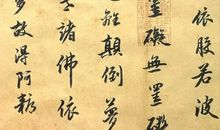 依般若波
罣礙無罣礙
離顛倒夢
世諸佛依
多故得阿耨